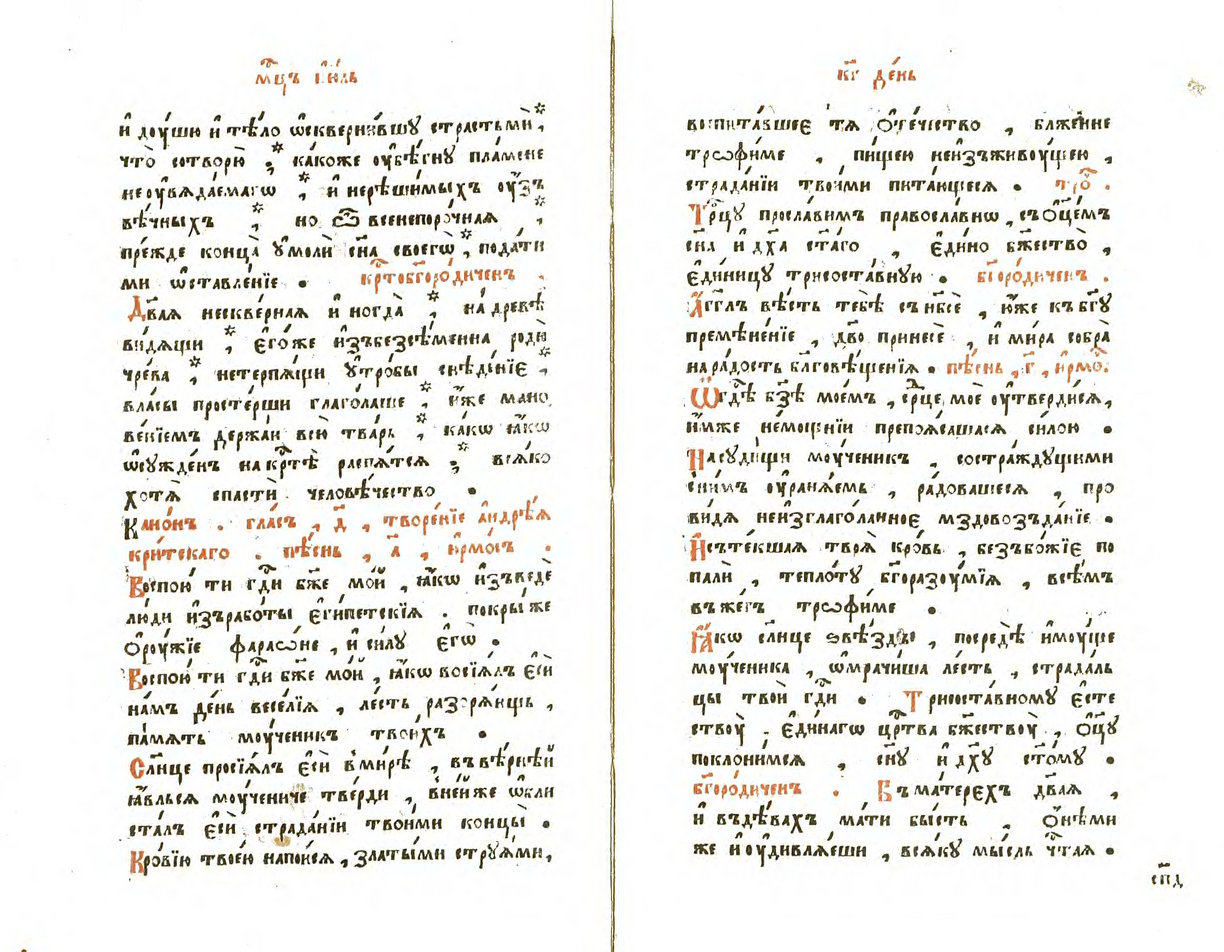 мⷭ҇цъ і҆ю́ль
и҆ дꙋ́шꙋ и҆ тѣ́ло ѡ҆скверни́вшꙋ страстьмѝ *,
что̀ сотворю̀ *, ка́коже ᲂу҆бѣ́гнꙋ пла́мене
неᲂу҆вѧда́емагѡ *, и҆ нерѣши́мыхъ ᲂу҆́зъ
вѣ́чныхъ *, но ѿ всенепоро́чнаѧ *,
пре́жде конца̀ ᲂу҆молѝ сн҃а своегѡ̀ *, пода́ти
ми ѡ҆ставле́нїе . крⷭ҇тобг҃оро́диченъ .
Дв҃аѧ нескве́рнаѧ и҆ногда̀ *, на дре́вѣ
ви́дѧщи *, є҆го́же и҆зъ безсѣ́менна родѝ
чре́ва *, нетерпѧ́щи ᲂу҆тро́бы снѣде́нїе *,
власы̀ просте́рши глаго́лаше *, и҆́же мано
ве́нїемъ держа́й всю̀ тва́рь *, ка́кѡ ꙗ҆́кѡ
ѡ҆сꙋжде́нъ на крⷭ҇тѣ̀ распѧ́тсѧ *, всѧ́ко
хотѧ̀ спастѝ человѣ́чество .
Кано́нъ . гла́съ , д҃ , творе́нїе а҆ндре́ѧ
кри́тскаго . пѣ́снь , а҃ , і҆рмо́съ .
Воспою́ ти гдⷭ҇и бж҃е мо́й , ꙗ҆́кѡ и҆зъведѐ
лю́ди и҆зъ рабо́ты є҆ги́петскїѧ . покры́ же
ѻ҆рꙋ́жїе фараѡ́не , и҆ си́лꙋ є҆гѡ̀ .
Воспою́ ти гдⷭ҇и бж҃е мо́й , ꙗ҆́кѡ восїѧ́лъ є҆сѝ
на́мъ де́нь весе́лїѧ , ле́сть разорѧ́ющь ,
па́мѧть мꙋ́ченикъ твои́хъ .
Сл҃нце просїѧ́лъ є҆сѝ в ми́рѣ , въ вѣ́рнѣй
ꙗ҆́вльсѧ мꙋ́чениче тве́рди , в не́йже ѡ҆бли
ста́лъ є҆сѝ страда́нїи твои́ми концы̀ .
Кро́вїю твое́ю напои́сѧ , златы́ми стрꙋѧ́ми ,
кг҃ де́нь
воспита́вшее тѧ̀ ѻ҆те́чество , бл҃же́нне
трѡфи́ме , пи́щею неи҆зъживꙋ́щею ,
страда́нїи твои́ми пита́ющесѧ . трⷪ҇ .
Трⷪ҇цꙋ просла́вимъ правосла́внѡ , съ ѻ҆ц҃е́мъ
сн҃а и҆ дх҃а ст҃а́го , є҆ди́но бж҃ество̀ ,
є҆ди́ницꙋ трисоста́внꙋю . бг҃оро́диченъ .
А҆́гг҃лъ вѣ́сть тебѣ̀ съ нб҃сѐ , ю҆́же къ бг҃ꙋ
премѣне́нїе , дв҃о принесѐ , и҆ ми́ра собра̀
на ра́дость бл҃говѣ́щенїѧ . пѣ́снь , г҃ , і҆рмо́ .
Ѡ҆ гдⷭ҇ѣ бз҃ѣ мое́мъ , срⷣце моѐ ᲂу҆тверди́сѧ ,
и҆́мже не́мощнїи препоѧ́сашасѧ си́лою .
На сꙋди́щи мꙋ́ченикъ , состра́ждꙋщими
с ни́мъ ᲂу҆ранѧ́емь , ра́довашесѧ , про
ви́дѧ неи҆зглаго́ланное мздовоздаѧ́нїе .
И҆стекшаѧ твоѧ̀ кро́вь , безъбо́жїе по
палѝ , теплотꙋ̀ бг҃оразꙋ́мїѧ , всѣ́мъ
въжегъ трѡфи́ме .
Ꙗ҆́кѡ сл҃нце ѕвѣ́зды̀ , посредѣ̀ и҆мꙋ́ще
мꙋ́ченика , ѡ҆мрачи́ша ле́сть , страда́ль
цы твоѝ гдⷭ҇и . Трисоста́вномꙋ є҆сте
ствꙋ̀ , є҆ди́нагѡ црⷭ҇тва бж҃ествꙋ̀ , ѻ҆ц҃ꙋ̀
поклони́мсѧ , сн҃ꙋ и҆ дх҃ꙋ ст҃о́мꙋ .
бг҃оро́диченъ . Въ ма́терехъ дв҃аѧ ,
и҆ въ дѣ́вахъ ма́ти бы́сть , ѻ҆́нѣми
же и҆ ᲂу҆дивлѧ́еши , всѧ́кꙋ мы́сль чⷭ҇таѧ .
сп҃д